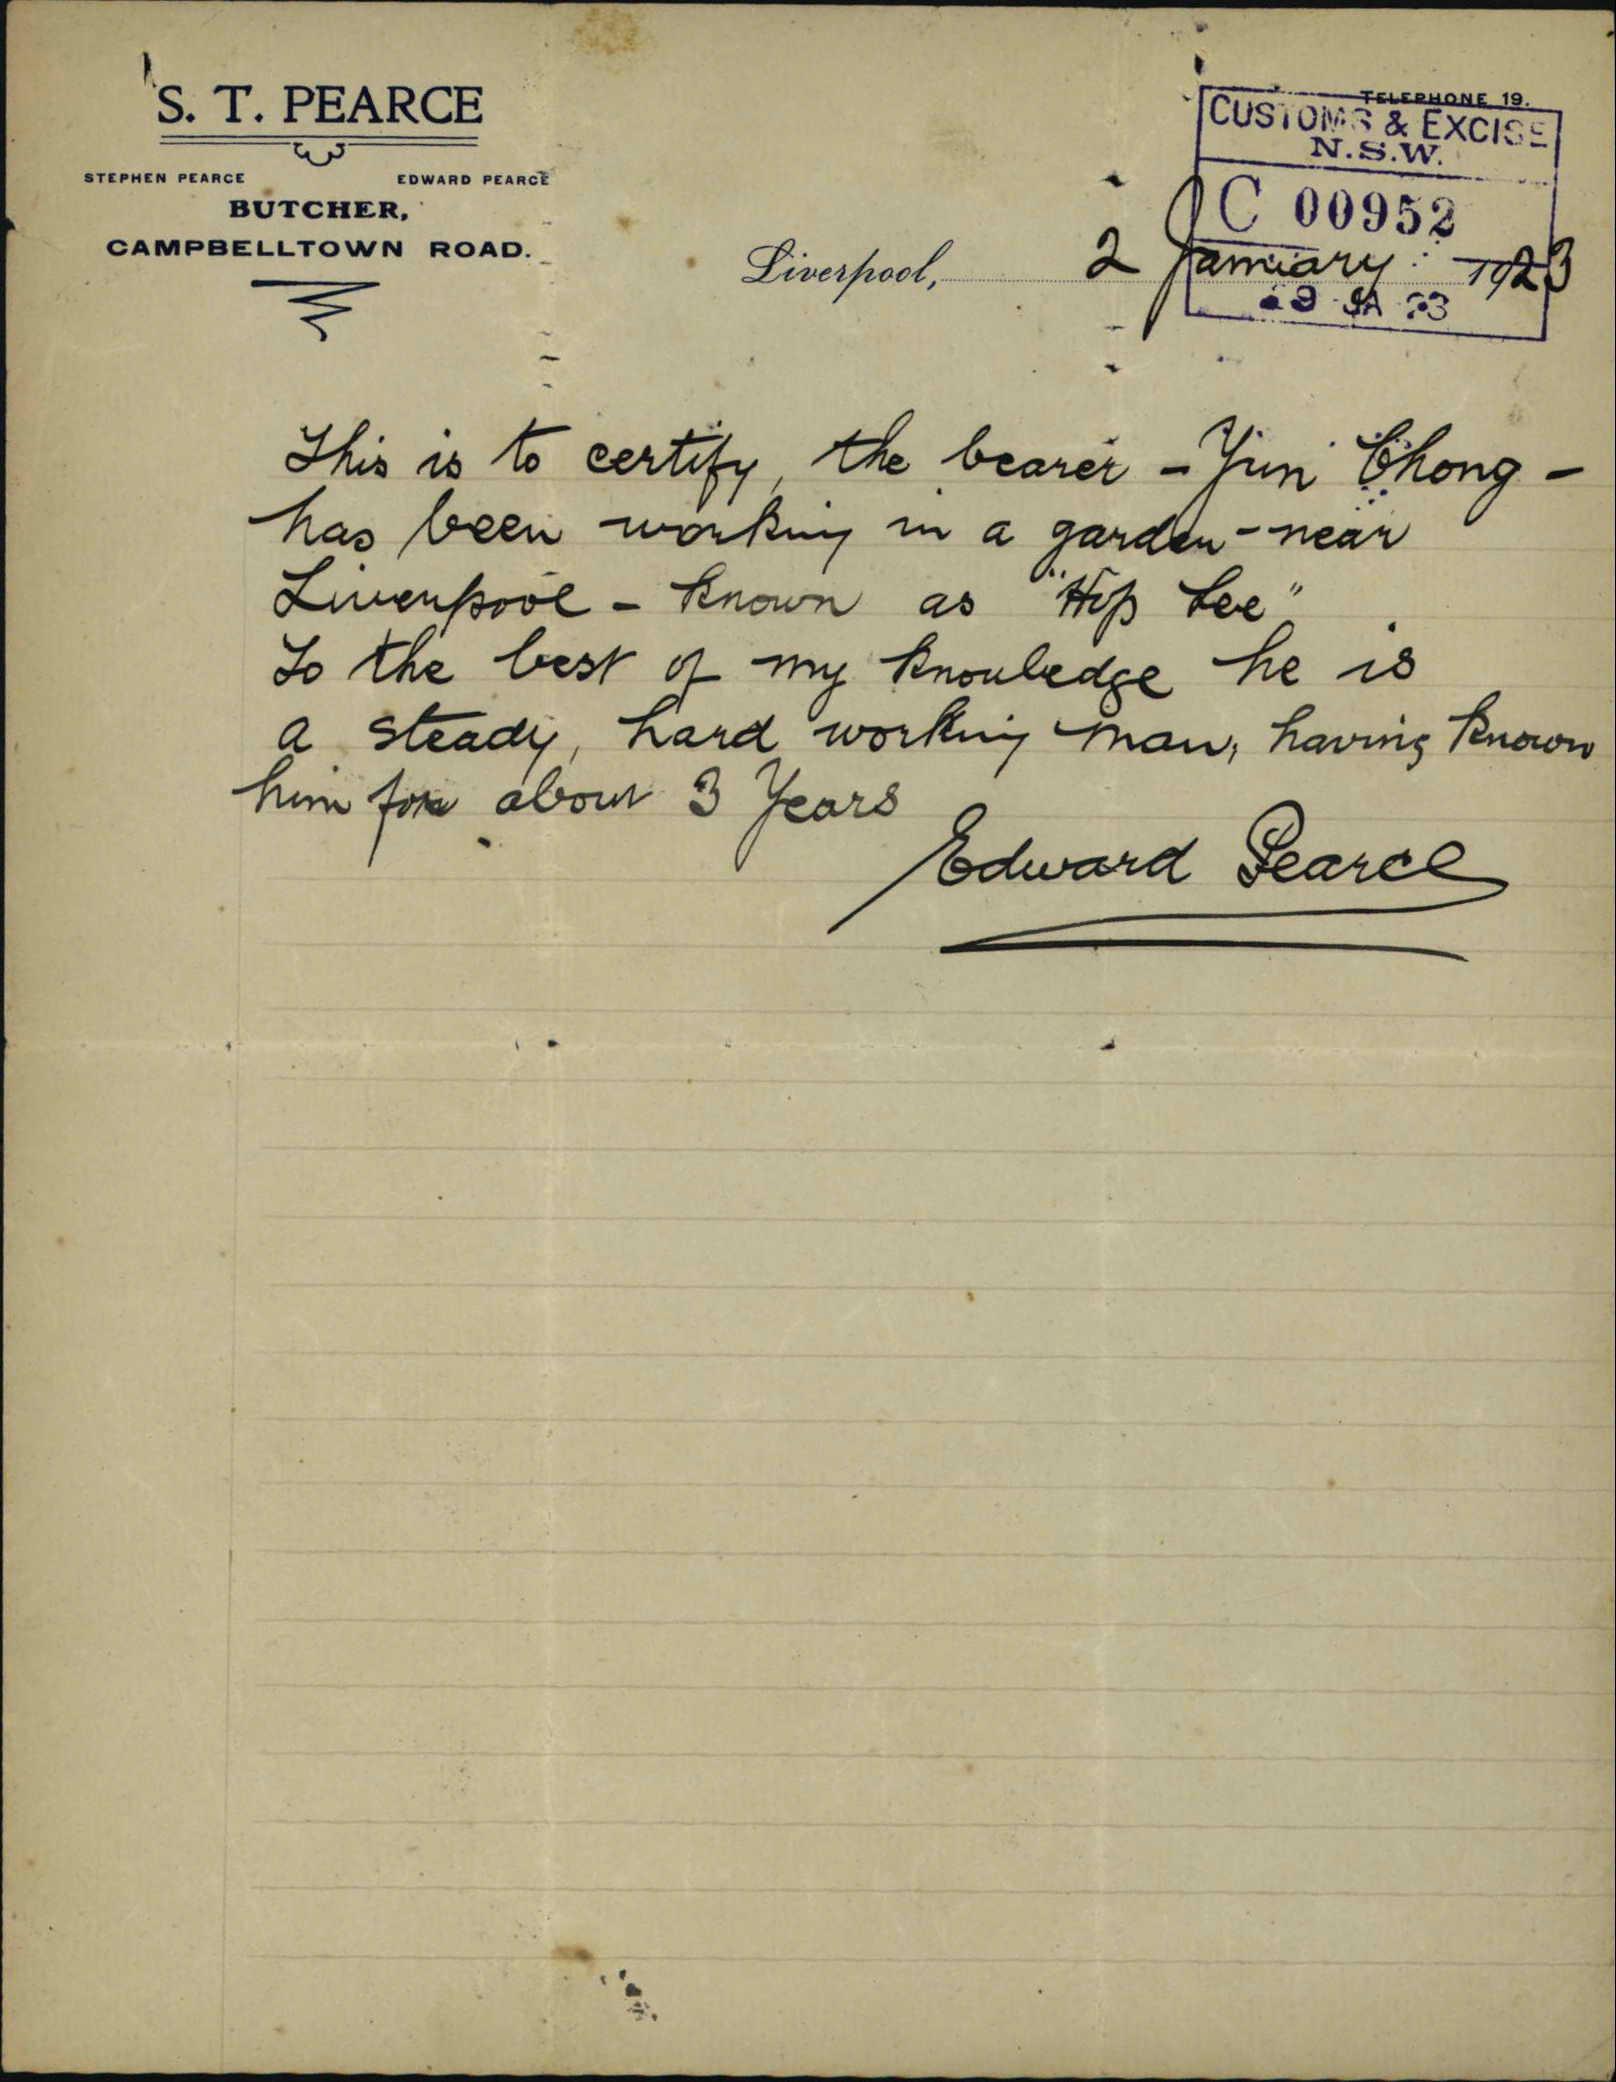 S. T. PEARCE
STEPHEN PEARCE EDWARD PEARCE
BUTCHER,
CAMPBELLTOWN ROAD.
TELEPHONE 19.
CUSTOMS & EXCISE
N.S.W.
C 00952
Liverpool, 2 January 1923
This is to certify, the bearer - Yun Chong -
has been working in a garden - near
Liverpool - known as "Hip Lee"
To the best of my knowledge he is
a steady, hard working man, having known
him for about 3 Years
Edward Pearce